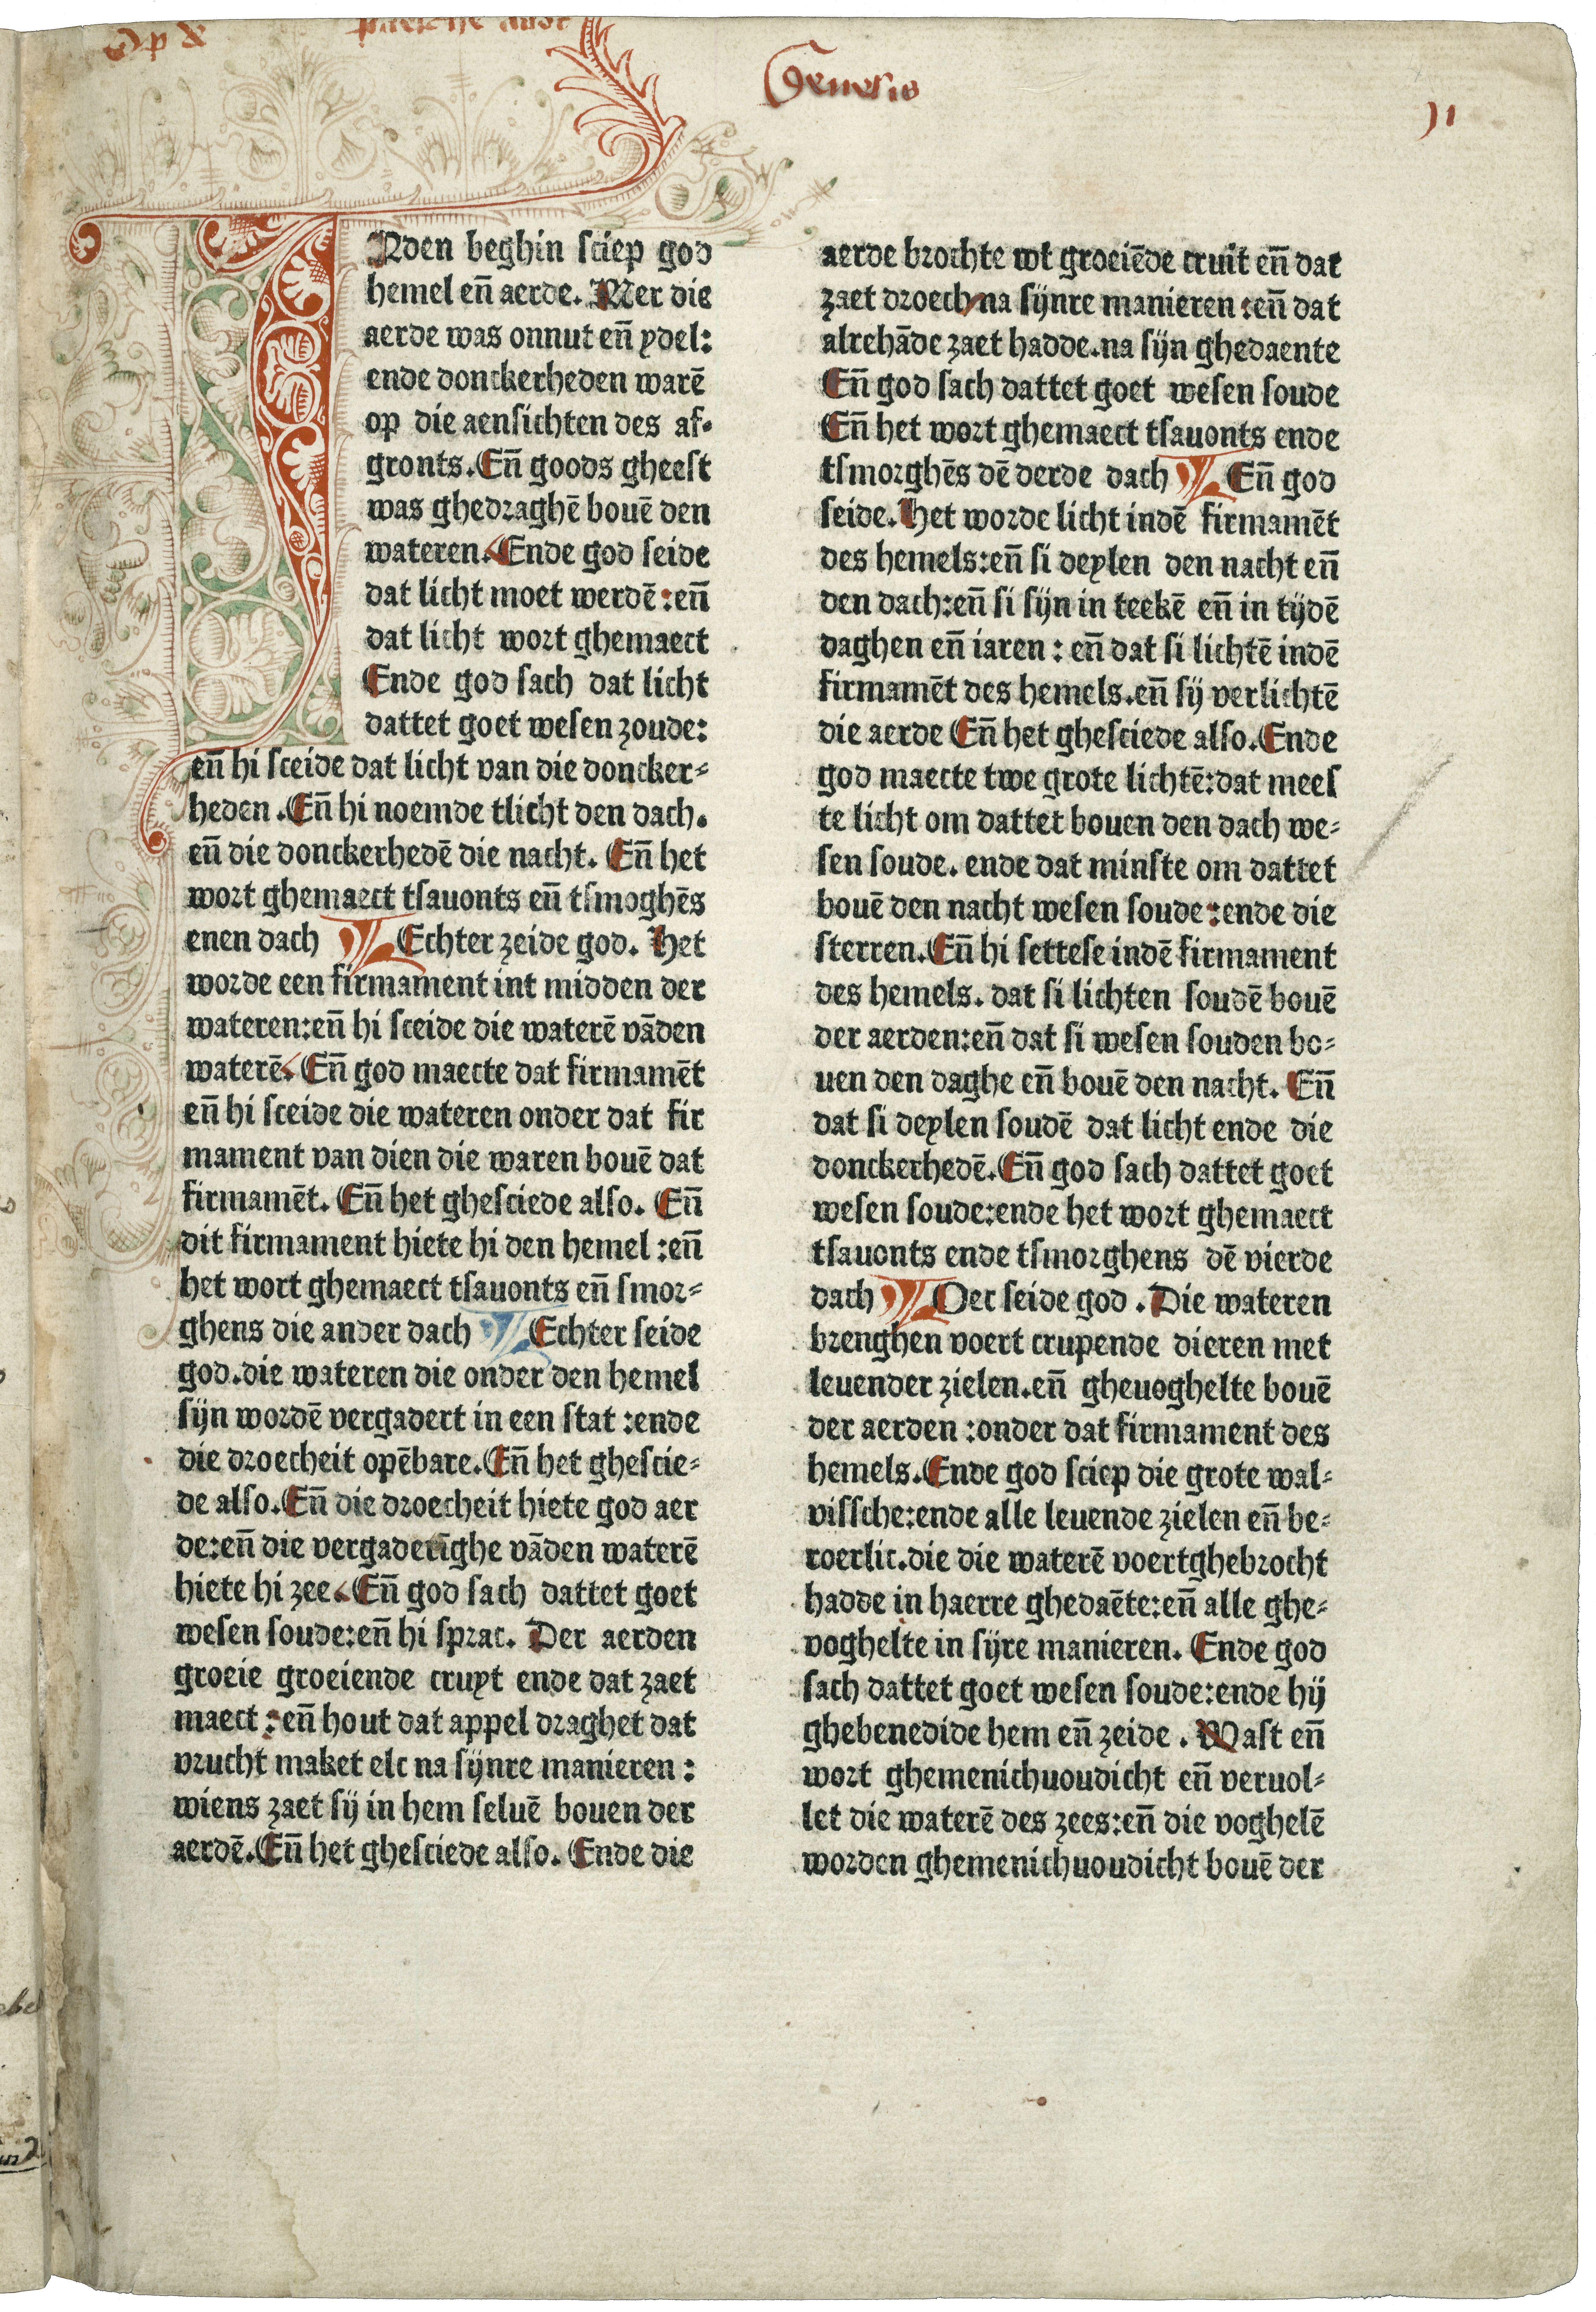 Genesis
INden beghin sciep god
hemel eñ aerde. Mer die
aerde was onnut eñ ydel:
ende donckerheden warē
op die aensichten des af-
gronts. Eñ goods gheest
was ghedraghē bouē den
wateren. Ende god seide
dat licht moet werdē: eñ
dat licht wort ghemaect
Ende god sach dat licht
dattet goet wesen zoude:
eñ hi sceide dat licht van die doncker-
heden. Eñ hi noemde tlicht den dach.
eñ die donckerhedē die nacht. Eñ het
wort ghemaect tsauonts eñ tsmoghēs
enen dach Echter zeide god. Het
worde een firmament int midden der
wateren: eñ hi sceide die waterē vāden
waterē. Eñ god maecte dat firmamēt
eñ hi sceide die wateren onder dat fir
mament van dien die waren bouē dat
firmamēt. Eñ het ghesciede also. Eñ
dit firmament hiete hi den hemel: eñ
het wort ghemaect tsauonts eñ smor-
ghens die ander dach Echter seide
god. die wateren die onder den hemel
sijn wordē vergadert in een stat: ende
die droecheit opēbare. Eñ het ghescie-
de also. Eñ die droecheit hiete god aer
de: eñ die vergaderīghe vāden waterē
hiete hi zee. Eñ god sach dattet goet
wesen soude: eñ hi sprac. Der aerden
groeie groeiende cruyt ende dat zaet
maect: eñ hout dat appel draghet dat
vrucht maket elc na sijnre manieren:
wiens zaet sij in hem seluē bouen der
aerdē. Eñ het ghesciede also. Ende die
aerde brochte wt groeiēde cruit eñ dat
zaet droech na sijnre manieren: eñ dat
alrehāde zaet hadde. na sijn ghedaente
Eñ god sach dattet goet wesen soude
Eñ het wort ghemaect tsauonts ende
tsmorghēs dē derde dach Eñ god
seide. Het worde licht indē firmamēt
des hemels: eñ si deylen den nacht eñ
den dach: eñ si sijn in teekē eñ in tijdē
daghen eñ iaren: eñ dat si lichtē indē
firmamēt des hemels. eñ sij verlichtē
die aerde Eñ het ghesciede also. Ende
god maecte twe grote lichtē: dat mees
te licht om dattet bouen den dach we-
sen soude. ende dat minste om dattet
bouē den nacht wesen soude: ende die
sterren. Eñ hi settese indē firmament
des hemels. dat si lichten soudē bouē
der aerden: eñ dat si wesen souden bo-
uen den daghe eñ bouē den nacht. Eñ
dat si deylen soudē dat licht ende die
donckerhedē. Eñ god sach dattet goet
wesen soude: ende het wort ghemaect
tsauonts ende tsmorghens dē vierde
dach Oec seide god. Die wateren
brenghen voert crupende dieren met
leuender zielen. eñ gheuoghelte bouē
der aerden: onder dat firmament des
hemels. Ende god sciep die grote wal-
vissche: ende alle leuende zielen eñ be-
roerlic. die die waterē voertghebrocht
hadde in haerre ghedaēte: eñ alle ghe-
voghelte in sijre manieren. Ende god
sach dattet goet wesen soude: ende hij
ghebenedide hem eñ zeide. Wast eñ
wort ghemenichuoudicht eñ veruol-
let die waterē des zees: eñ die voghelē
worden ghemenichuoudicht bouē der